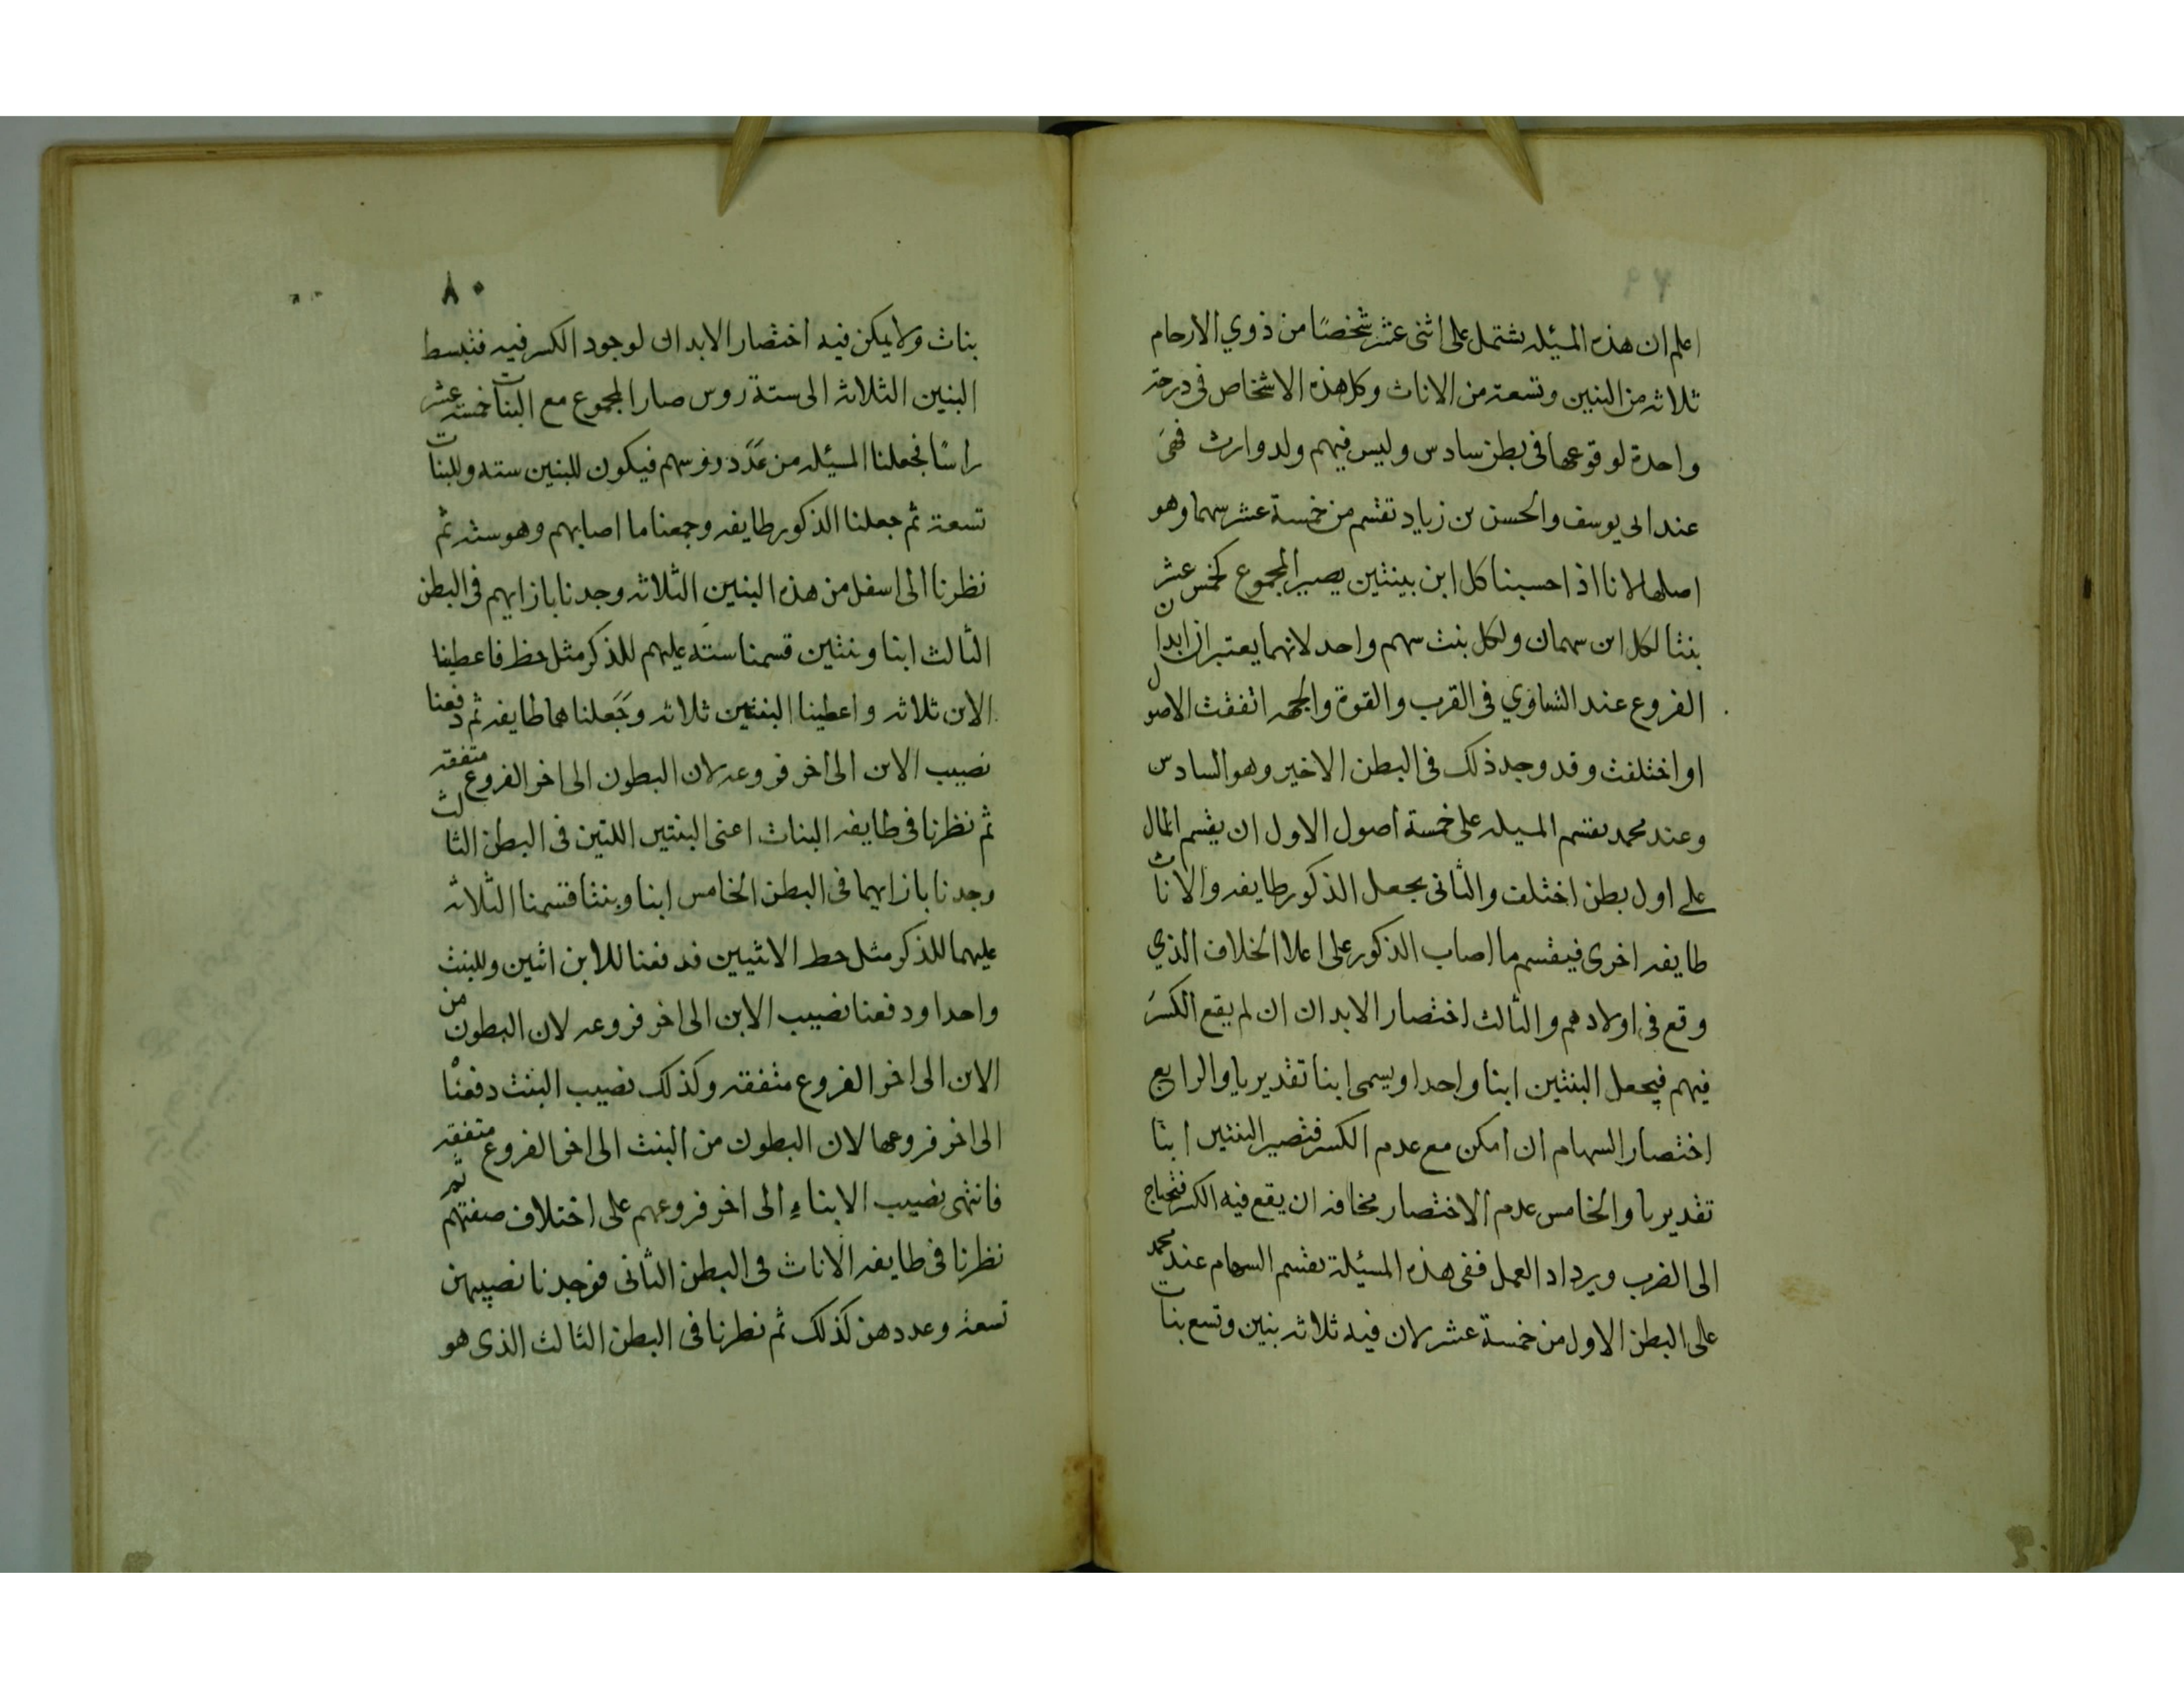 اعلم ان هذه المسئله يشتمل على اثنى عشر شخصًا من ذوي الارحام
ثلاثه من البنين وتسعة من الاناث وكل هذه الاشخاص فى درجة
واحدة لوقوعها فى بطن سادس وليس فيهم ولد وارث فهىَ
عند ابى يوسف والحسن بن زياد تقسم من خمسة عشر سهما وهو
اصلها لانا اذا حسبنا كل ابن ببنتين يصير المجموع كخمس عشر
بنتا لكل ابن سهمان ولكل بنت سهم واحد لانهما يعتبران ابدان
الفروع عند التساوي فى القرب والقوة والجهه اتفقت الاصول
او اختلفت وقد وجد ذلك فى البطن الاخير وهو السادس
وعند محمد يقسم المسيله على خمسة اصول الاول ان يقسم المال
على اول بطن اختلف والثانى يجعل الذكور طايفه والاناث
طايفه اخرى فيقسم ما اصاب الذكور على اعلا الخلاف الذي
وقع فى اولادهم والثالث اختصار الابدان ان لم يقع الكسرَ
فيهم فيجعل البنتين ابنا واحدا ويسمى ابنا تقديريا والرابع
اختصار السهام ان امكن مع عدم الكسر فتصير البنتين ابنا
تقديريا والخامس عدم الاختصار مخافه ان يقع فيه الكسر فتحتاج
الى الضرب ويرداد العمل ففى هذه المسئلة يقسم السهام عند محمد
على البطن الاول من خمسة عشر لان فيه ثلاثه بنين وتسع بنات
٨٠
بنات ولا يمكن فيه اختصار الابدان لوجود الكسر فيه فتبسط
البنين الثلاثه الى ستة روس صار المجموع مع البنات خمسة عشر
راسًا فجعلنا المسئله من عدد روسهم فيكون للبنين سته وللبنات
تسعة ثم جعلنا الذكور طايفه وجمعنا ما اصابهم وهو سته ثم
نظرنا الى اسفل من هذه البنين الثلاثه وجدنا بازايهم فى البطن
الثالث ابنا وبنتين قسمنا سته عليهم للذكر مثل حظ فاعطينا
الابن ثلاثه واعطينا البنتين ثلاثه وجَعلناهما طايفه ثم دفعنا
نصيب الابن الى اخر فروعه لان البطون الى اخر الفروع متفقه
ثم نظرنا فى طايفه البنات اعنى البنتين اللتين فى البطن الثالث
وجدنا بازايهما فى البطن الخامس ابنا وبنتا فقسمنا الثلاثه
عليهما للذكر مثل حظ الانثيين فدفعنا للابن اثنين وللبنت
واحدا ودفعنا نصيب الابن الى اخر فروعه لان البطون من
الابن الى اخر الفروع متفقه وكذلك نصيب البنت دفعنا
الى اخر فروعها لان البطون من البنت الى اخر الفروع متفقه
فانتهى نصيب الابناءِ الى اخر فروعهم على اختلاف صفتهم ثم
نظرنا فى طايفه الاناث فى البطن الثانى فوجدنا نصيبهن
تسعة وعددهن كذلك ثم نظرنا فى البطن الثالث الذى هو